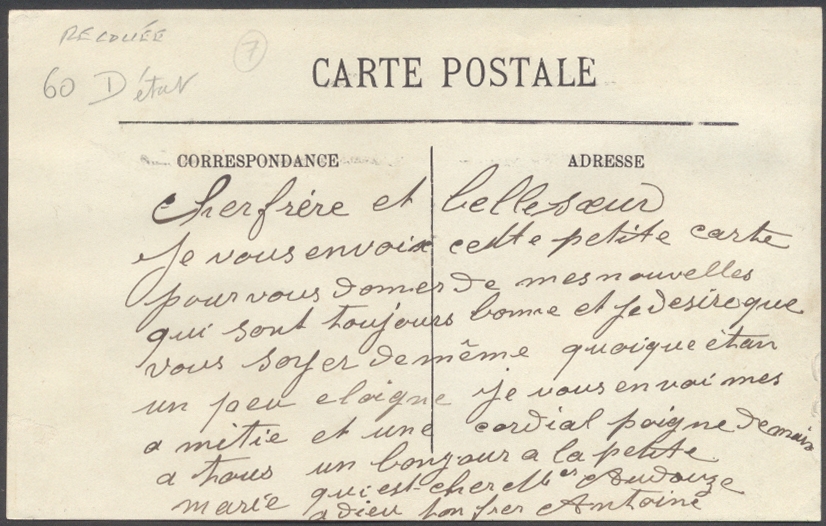 RECOUÉE
7
60 D état
CARTE POSTALE
CORRESPONDANCE
ADRESSE
cher frére et belle sœur
Je vous envoix cette petite carte
pour vous domer de mes nouvelles
qui sont toujours bonne et je desire que
vous soyer de même quoique étan
un peu eloigne je vous envoi mes
a mitie et une cordial poigne de main
a thous un bonjour a la petite
marie qui est cher Mer Audouze
adieu ton frer Antoine